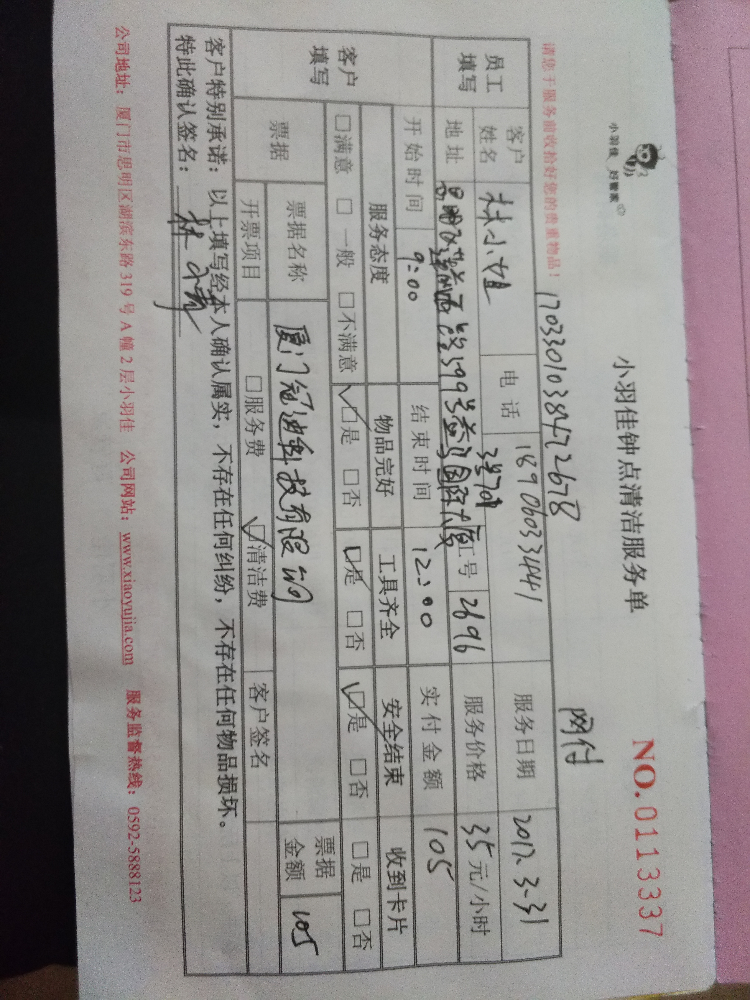 小羽佳 好管家
小羽佳钟点清洁服务单
NO.0113337
1703301038472678
网付
请您于服务前收拾好您的贵重物品!
员工填写
客户姓名 林小姐 电话 18906033441 服务日期 2017.3-31
地址 599号 3楼 工号 2696 服务价格 35元/小时
开始时间 9:00 结束时间 12:00 实付金额 105
客户填写
服务态度 物品完好 工具齐全 安全结束 收到卡片
□满意 □一般 □不满意 ☑是 □否 ☑是 □否 ☑是 □否 □是 □否
票据 票据名称 厦门冠迪科技有限公司 票据金额 105
开票项目 □服务费 ☑清洁费 客户签名
客户特别承诺:以上填写经本人确认属实,不存在任何纠纷,不存在任何物品损坏。
特此确认签名:林
公司地址:厦门市思明区湖滨东路319号A幢2层小羽佳 公司网站:www.xiaoyujia.com 服务监督热线:0592-5888123